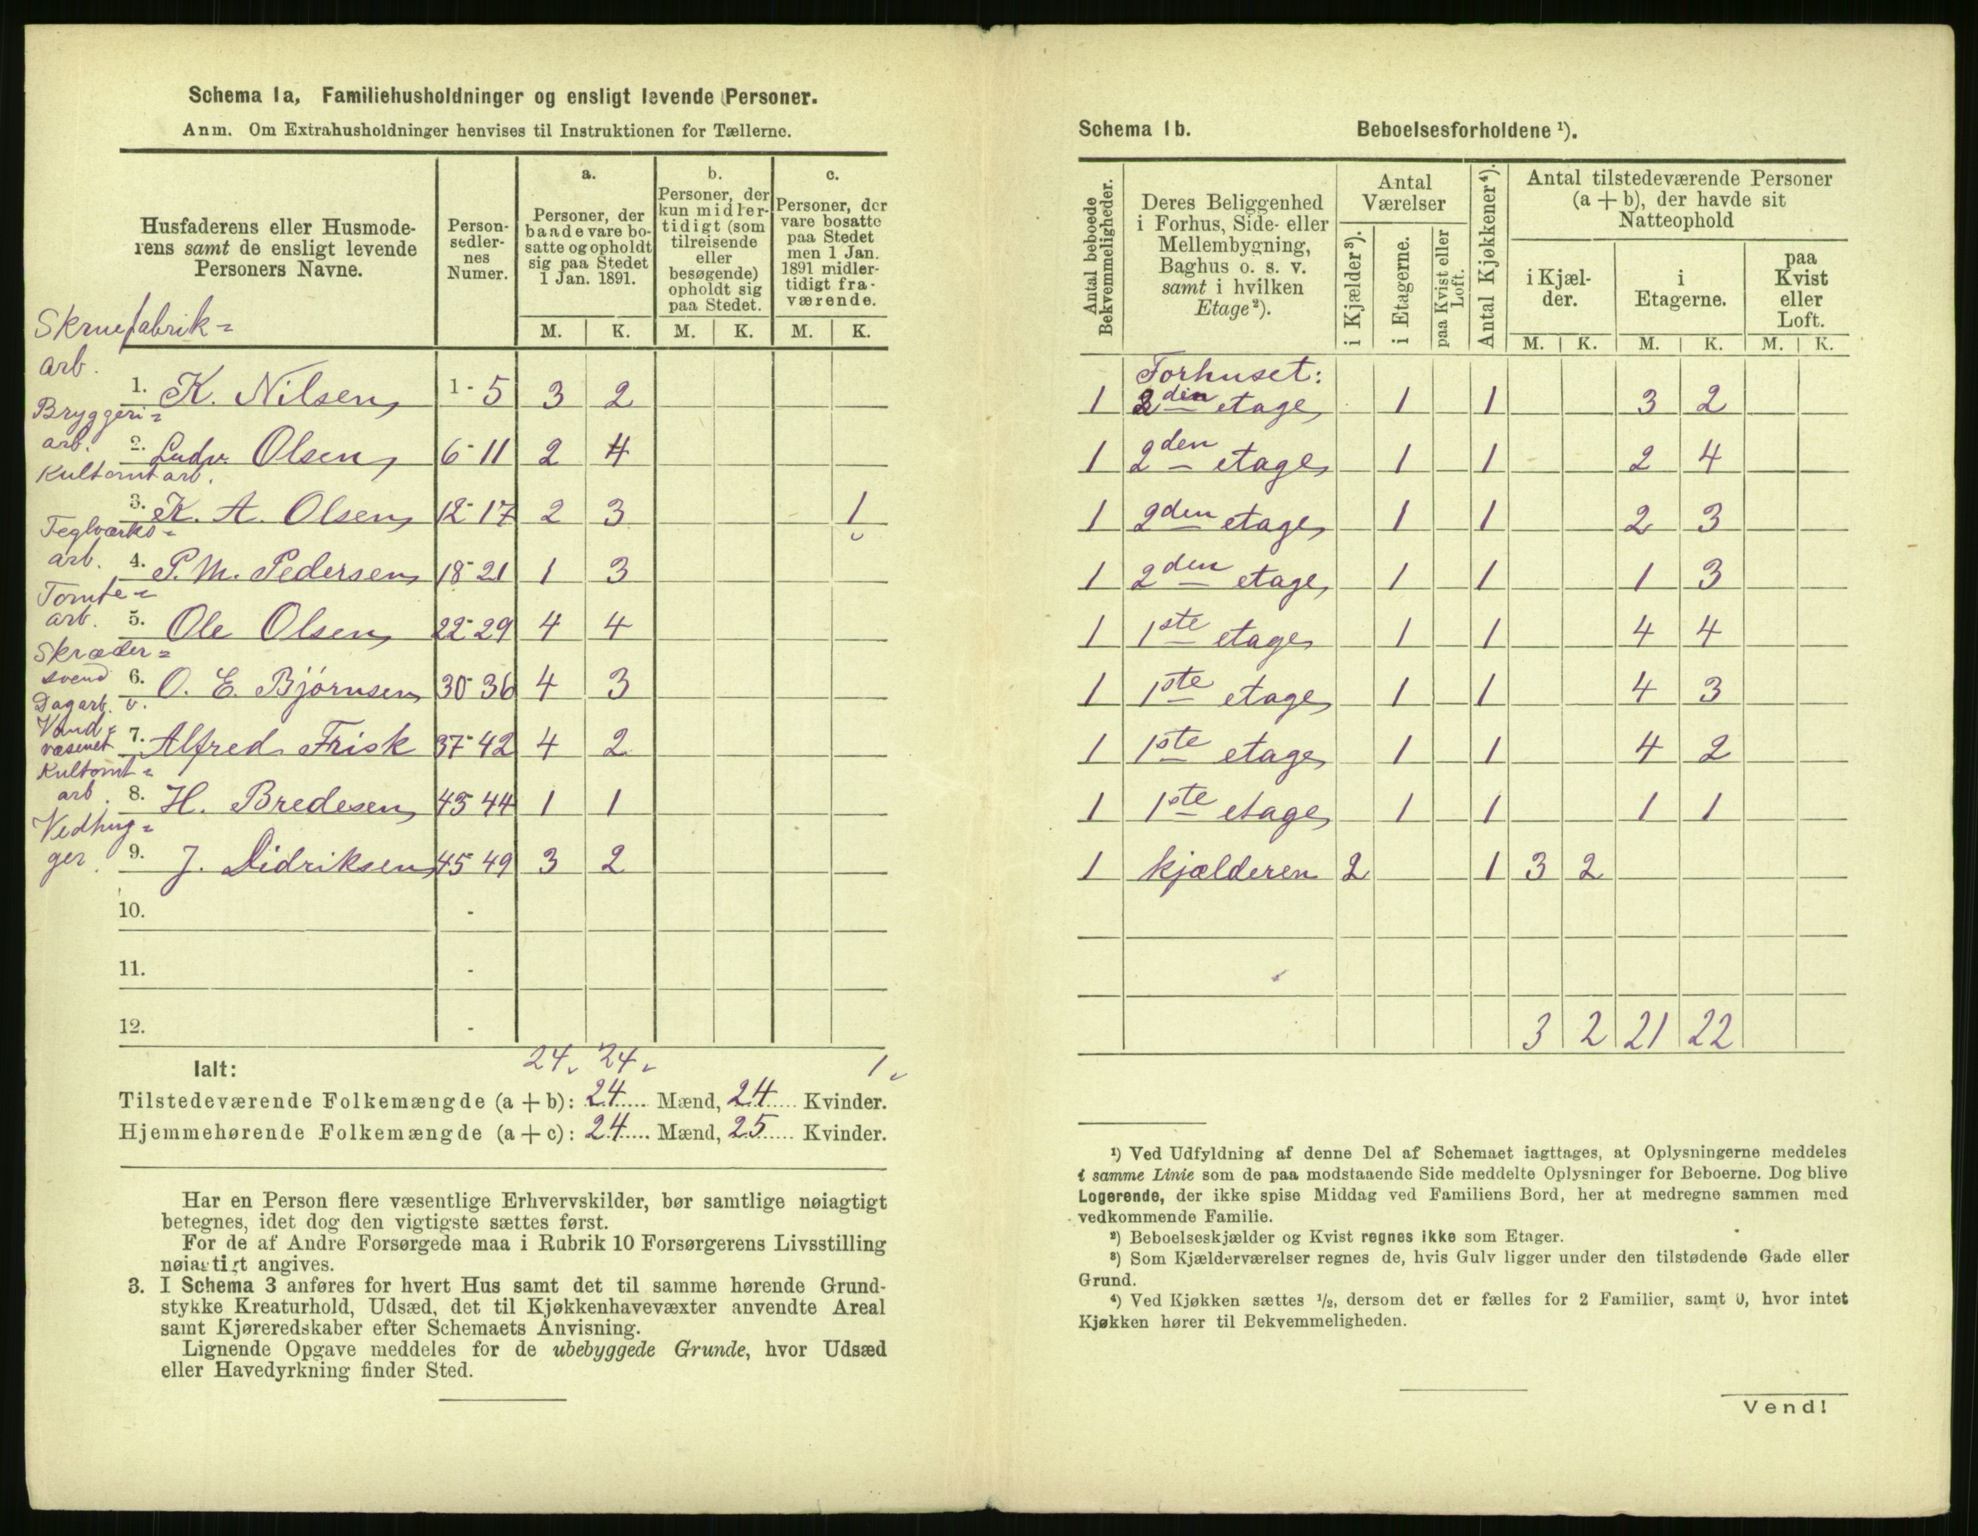 Schema 1a, Familiehusholdninger og ensligt levende Personer.
Anm. Om Extrahusholdninger henvises til Instruktionen for Tællerne.
Husfaderens eller Husmoderens samt de ensligt levende Personers Navne.
Person-sedlernes Numer.
a.
Personer, der baade vare bosatte og opholdt sig paa Stedet 1 Jan. 1891.
b.
Personer, der kun midlertidigt (som tilreisende eller besøgende) opholdt sig paa Stedet.
c.
Personer, der vare bosatte paa Stedet men 1 Jan. 1891 midlertidigt fraværende.
M. K. M. K. M. K.
Skruefabrik=
arb.
1. K. Nilsen, 1-5 3 2
Bryggeri=
arb. 2. Ludv. Olsen, 6-11 2 4
Kultomtarb.
3. K. A. Olsen, 12-17 2 3 1
Teglværks=
arb. 4. P. M. Pedersen, 18-21 1 3
Tomte=
arb. 5. Ole Olsen, 22-29 4 4
Skræder=
svend 6. O. E. Bjørnsen, 30-36 4 3
Dagarb. v.
Vand=
væsenet 7. Alfred Frisk 37-42 4 2
Kultomt=
arb. 8. H. Bredesen, 43-44 1 1
Vedhug=
ger. 9. J. Didriksen, 45-49 3 2
10. -
11. -
12. -
Ialt: 24 24 1
Tilstedeværende Folkemængde (a + b): 24 Mænd, 24 Kvinder.
Hjemmehørende Folkemængde (a + c): 24 Mænd, 25 Kvinder.
Har en Person flere væsentlige Erhvervskilder, bør samtlige nøiagtigt
betegnes, idet dog den vigtigste sættes først.
For de af Andre Forsørgede maa i Rubrik 10 Forsørgerens Livsstilling
nøiagtigt angives.
3. I Schema 3 anføres for hvert Hus samt det til samme hørende Grund-
stykke Kreaturhold, Udsæd, det til Kjøkkenhavevæxter anvendte Areal
samt Kjøreredskaber efter Schemaets Anvisning.
Lignende Opgave meddeles for de ubebyggede Grunde, hvor Udsæd
eller Havedyrkning finder Sted.
Schema 1b. Beboelsesforholdene ¹).
Antal beboede Bekvemmeligheder.
Deres Beliggenhed i Forhus, Side- eller Mellembygning, Baghus o. s. v. samt i hvilken Etage²).
Antal Værelser
i Kjælder³).
i Etagerne.
paa Kvist eller Loft.
Antal Kjøkkener⁴).
Antal tilstedeværende Personer (a + b), der havde sit Natteophold
i Kjælder.
i Etagerne.
paa Kvist eller Loft.
M. K. M. K. M. K.
Forhuset:
1 2den etage, 1 1 3 2
1 2den etage, 1 1 2 4
1 2den etage, 1 1 2 3
1 2den etage, 1 1 1 3
1 1ste etage, 1 1 4 4
1 1ste etage, 1 1 4 3
1 1ste etage, 1 1 4 2
1 1ste etage, 1 1 1 1
1 kjælderen 2 1 3 2
3 2 21 22
¹) Ved Udfyldning af denne Del af Schemaet iagttages, at Oplysningerne meddeles
i samme Linie som de paa modstaaende Side meddelte Oplysninger for Beboerne. Dog blive
Logerende, der ikke spise Middag ved Familiens Bord, her at medregne sammen med
vedkommende Familie.
²) Beboelseskjælder og Kvist regnes ikke som Etager.
³) Som Kjælderværelser regnes de, hvis Gulv ligger under den tilstødende Gade eller
Grund.
⁴) Ved Kjøkken sættes ½, dersom det er fælles for 2 Familier, samt 0, hvor intet
Kjøkken hører til Bekvemmeligheden.
Vend!